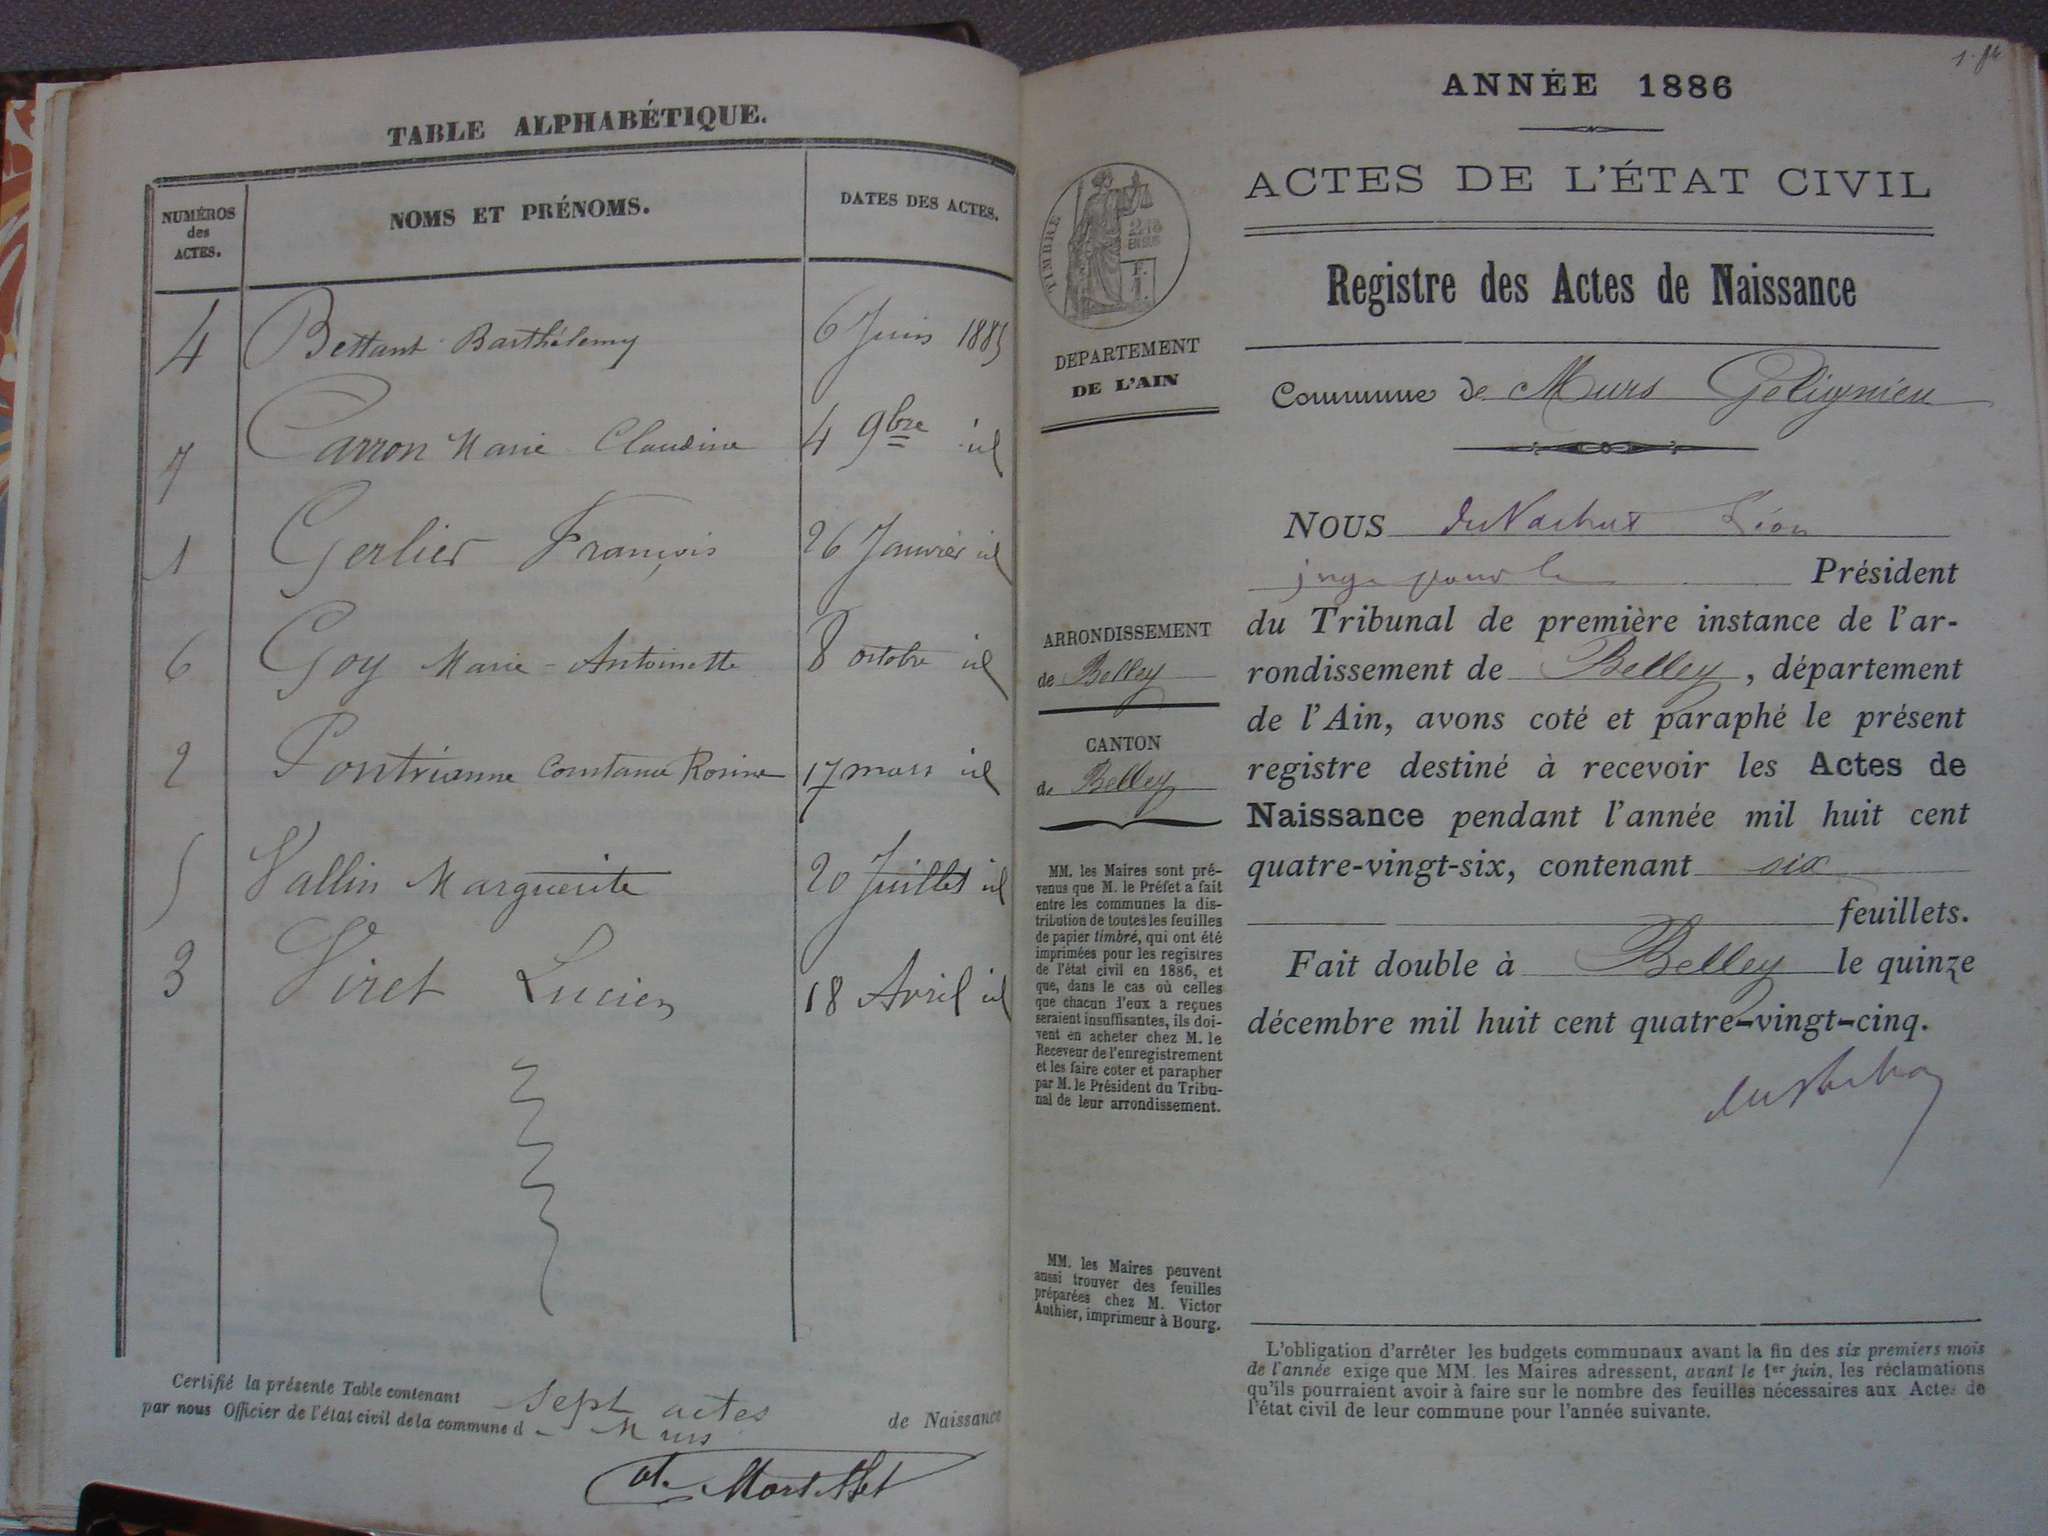 TABLE ALPHABÉTIQUE.
NUMÉROS des ACTES. NOMS ET PRÉNOMS. DATES DES ACTES.
4 Bettant Barthélemy 6 Juin 1885
7 Carron Marie Claudine 4 9bre id
1 Gerlier François 26 Janvier id
6 Goy Marie-Antoinette 8 octobre id
2 Pontrianne Constance Rosine 17 mars id
5 Vallin Marguerite 20 Juillet id
3 Viret Lucien 18 Avril id
Certifié la présente Table contenant sept actes de Naissance
par nous Officier de l'état civil de la commune d Murs
ANNÉE 1886
ACTES DE L'ÉTAT CIVIL
Registre des Actes de Naissance
Commune de Murs Gélignieu
TIMBRE
EN SUS
DEPARTEMENT
DE L'AIN
ARRONDISSEMENT
de Belley
CANTON
de Belley
MM. les Maires sont pré-
venus que M. le Préfet a fait
entre les communes la dis-
tribution de toutes les feuilles
de papier timbré, qui ont été
imprimées pour les registres
de l'état civil en 1886, et
que, dans le cas où celles
que chacun d'eux a reçues
seraient insuffisantes, ils doi-
vent en acheter chez M. le
Receveur de l'enregistrement
et les faire coter et parapher
par M. le Président du Tribu-
nal de leur arrondissement.
MM. les Maires peuvent
aussi trouver des feuilles
préparées chez M. Victor
Authier, imprimeur à Bourg.
NOUS Léon
juge pour le Président
du Tribunal de première instance de l'ar-
rondissement de Belley, département
de l'Ain, avons coté et paraphé le présent
registre destiné à recevoir les Actes de
Naissance pendant l'année mil huit cent
quatre-vingt-six, contenant six
feuillets.
Fait double à Belley le quinze
décembre mil huit cent quatre-vingt-cinq.
L'obligation d'arrêter les budgets communaux avant la fin des six premiers mois
de l'année exige que MM. les Maires adressent, avant le 1er juin, les réclamations
qu'ils pourraient avoir à faire sur le nombre des feuilles nécessaires aux Actes de
l'état civil de leur commune pour l'année suivante.